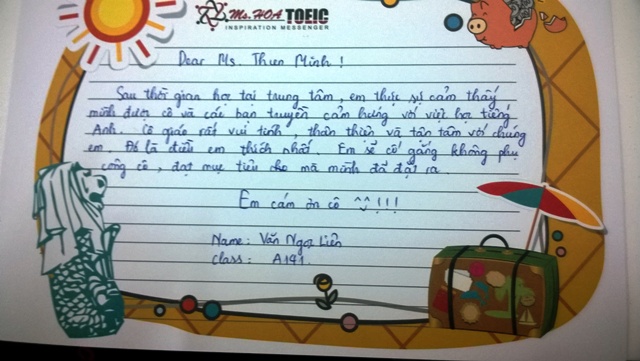 Ms. HOA TOEIC
INSPIRATION MESSENGER
Dear Ms. Thun Minh !
Sau thời gian học tại trung tâm, em thực sự cảm thấy
mình được cô và các bạn truyền cảm hứng với việc học tiếng
Anh. Cô giáo rất vui tính, thân thiện và tận tâm với chúng
em. Đó là điều em thích nhất. Em sẽ cố gắng không phụ
công cô, đạt mục tiêu cho mà mình đã đặt ra.
Em cám ơn cô ^^!!!
Name: Văn Ngọc Liên
Class: A191